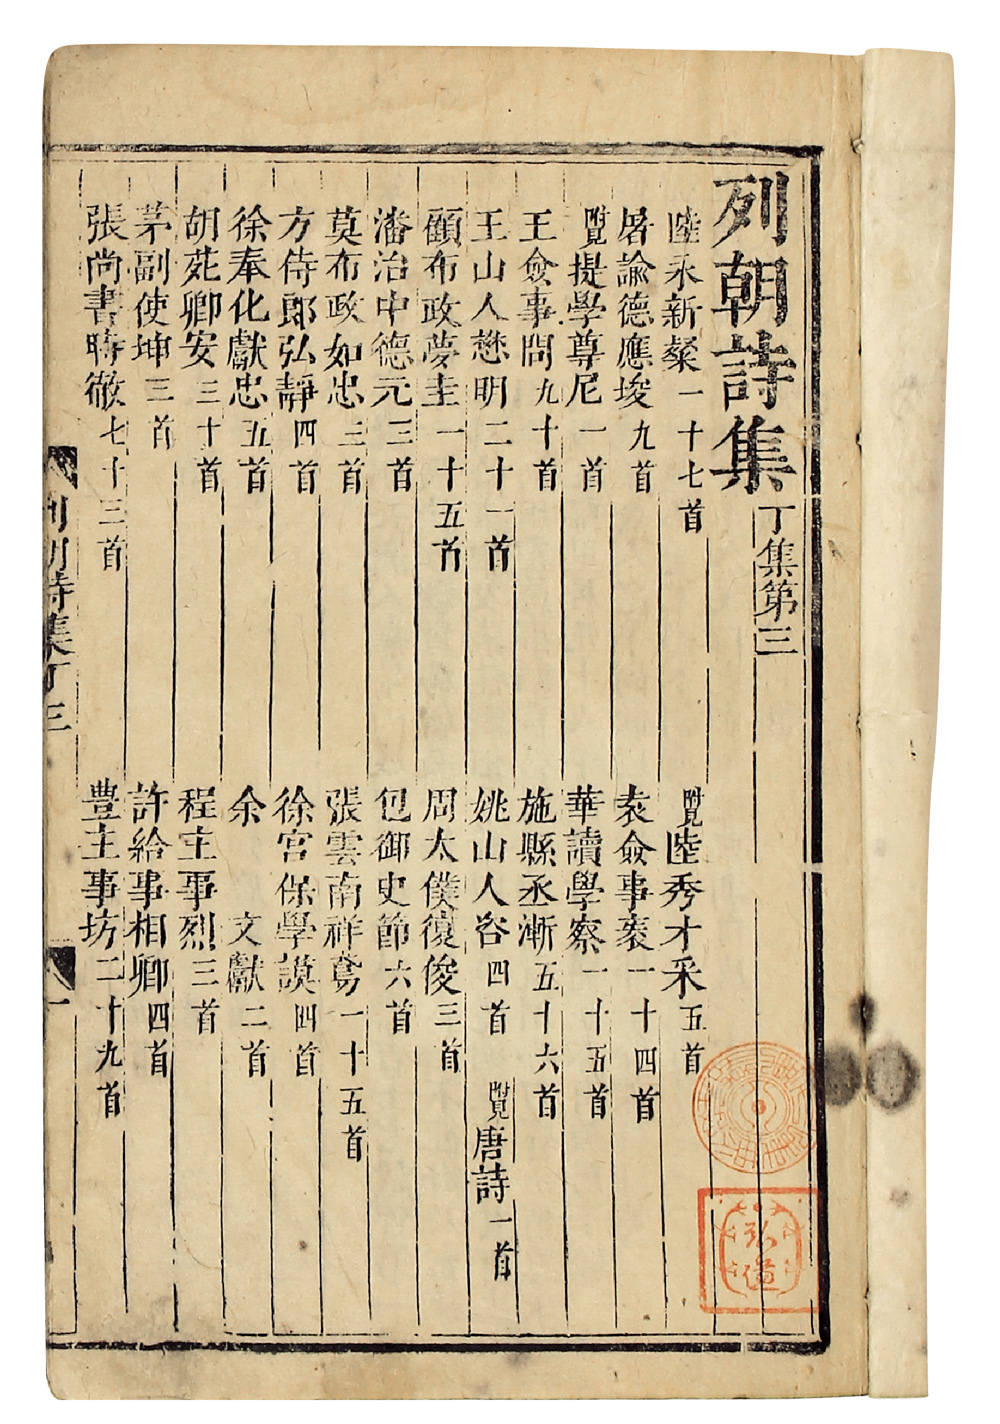 列朝詩集
丁集第三
陸永新粲一十七首
附見陸秀才采五首
屠諭德應埈九首
袁僉事袠一十四首
附見提學尊尼一首
華讀學察一十五首
王僉事問九十首
施縣丞漸五十六首
王山人懋明二十一首
姚山人咨四首 附見唐詩一首
顧布政夢圭一十五首
周太僕復俊三首
潘治中德元三首
包御史節六首
莫布政如忠三首
張雲南祥鳶一十五首
方侍郎弘靜四首
徐宮保學謨四首
徐奉化獻忠五首
余文獻二首
胡苑卿安三十首
程主事烈三首
茅副使坤三首
許給事相卿四首
張尚書時徹七十三首
豊主事坊二十九首
列朝詩集丁三
一
弘道